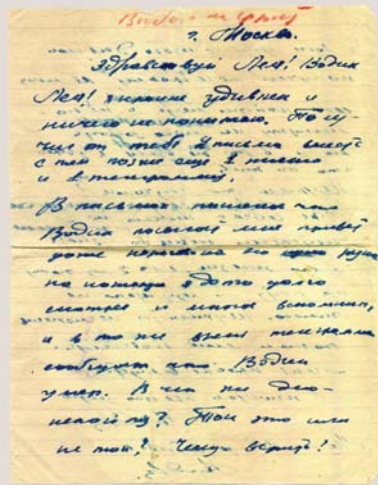 г. Москва.
Здравствуй Лея! Вадик
Лея! я крайне удивлен и
ничего не понимаю. Полу-
чил от тебя 2 письма вместе
с тем позже еще 2 письма
и в телеграмму.
В письмах писала что
Вадик посылал мне привет
даже
на я долго
смотрел и много вспомнил,
и в то же время телеграмма
сообщает что Вадик
умер. В чем же дело
непойму? Так это или
не так? Чему верить!